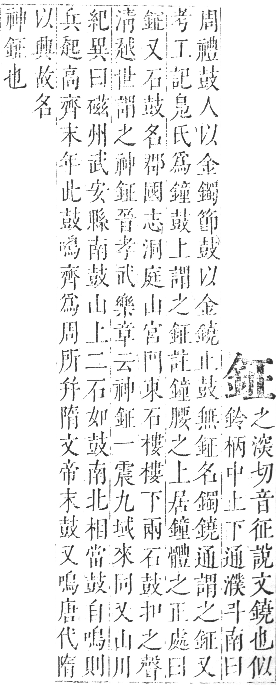 鉦
之湌切音征說文鐃也似
鈴柄中上下通濮斗南曰
周禮鼓人以金鐲節鼓以金鐃止鼓無鉦名鐲鐃通謂之鉦又
考工記鳧氏爲鐘鼓上謂之鉦註鐘腰之上居鐘體之正處曰
鉦又石鼓名郡國志洞庭山宮門東石樓樓下兩石鼓扣之聲
清越世謂之神鉦晉孝武樂章云神鉦一震九域來同又山川
紀異曰磁州武安縣南鼓山上二石如鼓南北相當鼓自鳴則
兵起高齊末年此鼓鳴齊爲周所幷隋文帝末鼓又鳴唐代隋
以興故名
神鉦也